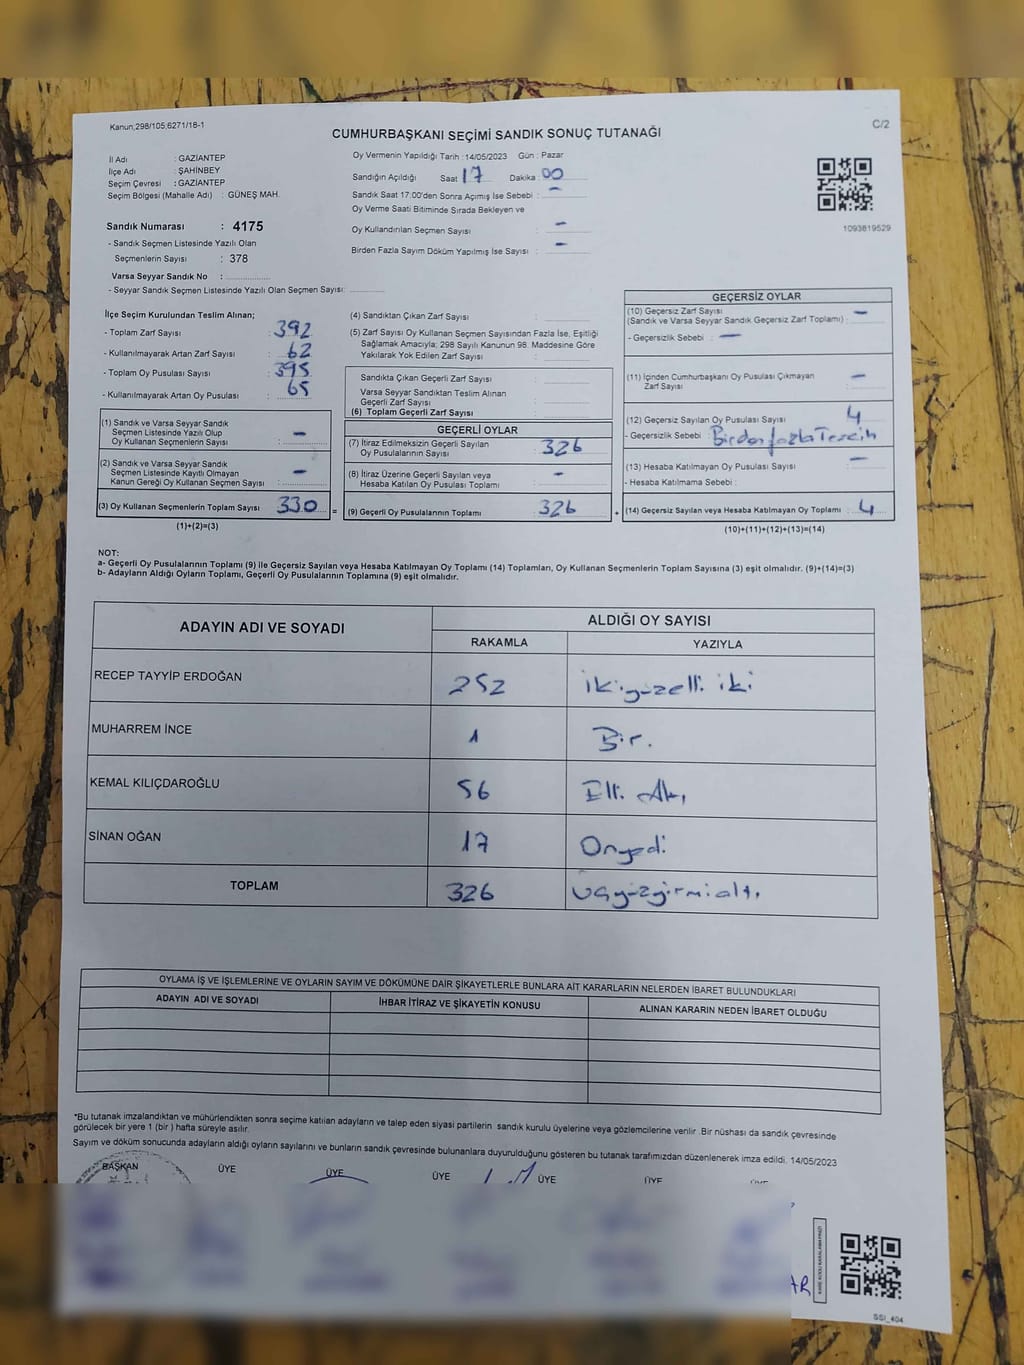 Kanun;298/105;6271/18-1
C/2
CUMHURBAŞKANI SEÇİMİ SANDIK SONUÇ TUTANAĞI
İl Adı : GAZİANTEP
İlçe Adı : ŞAHİNBEY
Seçim Çevresi : GAZİANTEP
Seçim Bölgesi (Mahalle Adı) : GÜNEŞ MAH.
Oy Vermenin Yapıldığı Tarih : 14/05/2023 Gün : Pazar
Sandığın Açıldığı Saat 17 Dakika 00
Sandık Saat 17:00'den Sonra Açımış İse Sebebi : -
Oy Verme Saati Bitiminde Sırada Bekleyen ve
Oy Kullandırılan Seçmen Sayısı : -
Birden Fazla Sayım Döküm Yapılmış İse Sayısı : -
1093819529
Sandık Numarası : 4175
- Sandık Seçmen Listesinde Yazılı Olan
Seçmenlerin Sayısı : 378
Varsa Seyyar Sandık No :
- Seyyar Sandık Seçmen Listesinde Yazılı Olan Seçmen Sayısı:
İlçe Seçim Kurulundan Teslim Alınan;
- Toplam Zarf Sayısı : 392
- Kullanılmayarak Artan Zarf Sayısı : 62
- Toplam Oy Pusulası Sayısı : 395
- Kullanılmayarak Artan Oy Pusulası : 65
(1) Sandık ve Varsa Seyyar Sandık
Seçmen Listesinde Yazılı Olup
Oy Kullanan Seçmenlerin Sayısı : -
(2) Sandık ve Varsa Seyyar Sandık
Seçmen Listesinde Kayıtlı Olmayan
Kanun Gereği Oy Kullanan Seçmen Sayısı : -
(3) Oy Kullanan Seçmenlerin Toplam Sayısı 330 =
(1)+(2)=(3)
(4) Sandıktan Çıkan Zarf Sayısı :
(5) Zarf Sayısı Oy Kullanan Seçmen Sayısından Fazla İse, Eşitliği
Sağlamak Amacıyla; 298 Sayılı Kanunun 98. Maddesine Göre
Yakılarak Yok Edilen Zarf Sayısı :
Sandıkta Çıkan Geçerli Zarf Sayısı :
Varsa Seyyar Sandıktan Teslim Alınan
Geçerli Zarf Sayısı :
(6) Toplam Geçerli Zarf Sayısı :
GEÇERLİ OYLAR
(7) İtiraz Edilmeksizin Geçerli Sayılan
Oy Pusulalarının Sayısı : 326
(8) İtiraz Üzerine Geçerli Sayılan veya
Hesaba Katılan Oy Pusulası Toplamı : -
(9) Geçerli Oy Pusulalarının Toplamı : 326 +
GEÇERSİZ OYLAR
(10) Geçersiz Zarf Sayısı
(Sandık ve Varsa Seyyar Sandık Geçersiz Zarf Toplamı) : -
- Geçersizlik Sebebi : -
(11) İçinden Cumhurbaşkanı Oy Pusulası Çıkmayan
Zarf Sayısı : -
(12) Geçersiz Sayılan Oy Pusulası Sayısı : 4
- Geçersizlik Sebebi : Birden fazla Tercih
(13) Hesaba Katılmayan Oy Pusulası Sayısı : -
- Hesaba Katılmama Sebebi :
(14) Geçersiz Sayılan veya Hesaba Katılmayan Oy Toplamı : 4
(10)+(11)+(12)+(13)=(14)
NOT:
a- Geçerli Oy Pusulalarının Toplamı (9) ile Geçersiz Sayılan veya Hesaba Katılmayan Oy Toplamı (14) Toplamları, Oy Kullanan Seçmenlerin Toplam Sayısına (3) eşit olmalıdır. (9)+(14)=(3)
b- Adayların Aldığı Oyların Toplamı, Geçerli Oy Pusulalarının Toplamına (9) eşit olmalıdır.
ADAYIN ADI VE SOYADI
ALDIĞI OY SAYISI
RAKAMLA YAZIYLA
RECEP TAYYİP ERDOĞAN 252 ikiyüzelli iki
MUHARREM İNCE 1 Bir.
KEMAL KILIÇDAROĞLU 56 Elli Altı
SİNAN OĞAN 17 Onyedi
TOPLAM 326 üçyüzyirmialtı
OYLAMA İŞ VE İŞLEMLERİNE VE OYLARIN SAYIM VE DÖKÜMÜNE DAİR ŞİKAYETLERLE BUNLARA AİT KARARLARIN NELERDEN İBARET BULUNDUKLARI
ADAYIN ADI VE SOYADI İHBAR İTİRAZ VE ŞİKAYETİN KONUSU ALINAN KARARIN NEDEN İBARET OLDUĞU
*Bu tutanak imzalandıktan ve mühürlendikten sonra seçime katılan adayların ve talep eden siyasi partilerin sandık kurulu üyelerine veya gözlemcilerine verilir. Bir nüshası da sandık çevresinde
görülecek bir yere 1 (bir ) hafta süreyle asılır.
Sayım ve döküm sonucunda adayların aldığı oyların sayılarını ve bunların sandık çevresinde bulunanlara duyurulduğunu gösteren bu tutanak tarafımızdan düzenlenerek imza edildi. 14/05/2023
BAŞKAN ÜYE ÜYE ÜYE ÜYE ÜYE
SSI_404